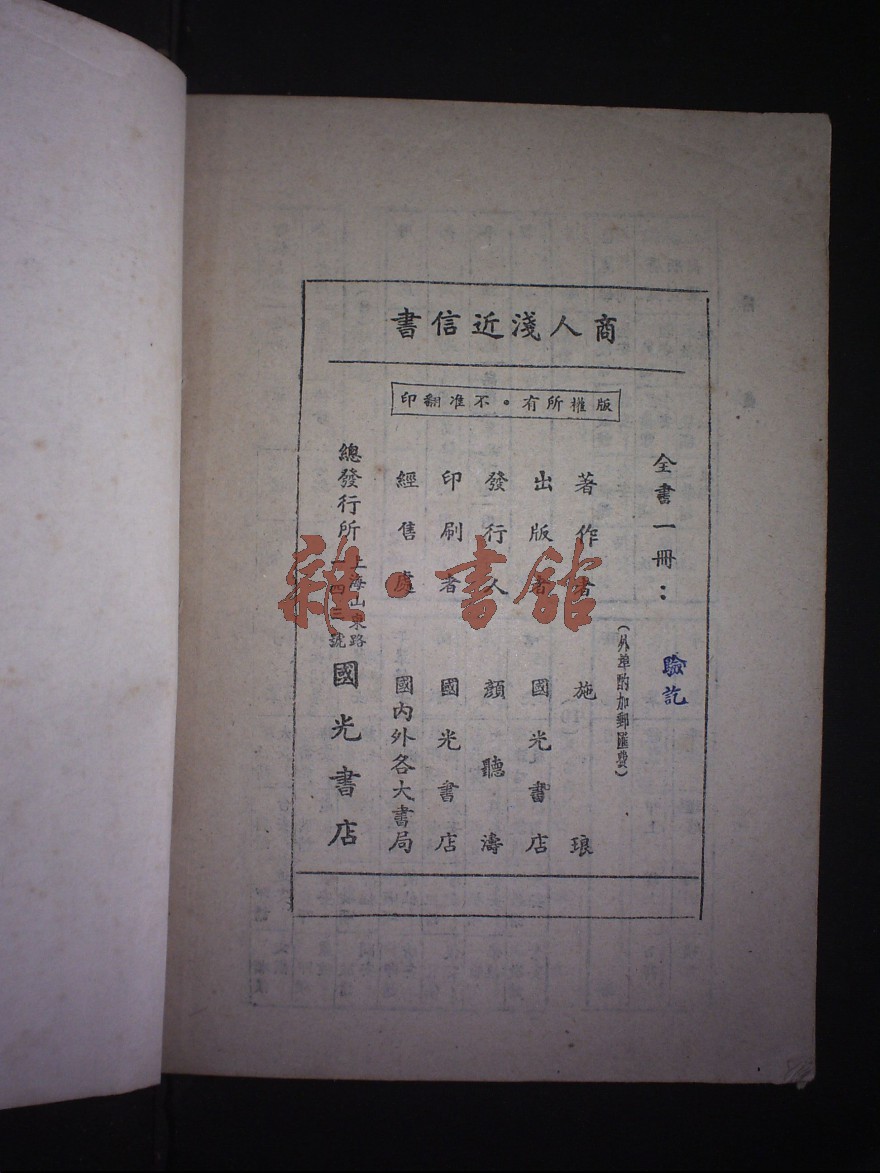 商人淺近信書
版權所有。不准翻印
全書一冊：
驗訖
（外埠酌加郵匯費）
著作者 施琅
出版者 國光書店
發行人 顏聽濤
印刷者 國光書店
經售處 國內外各大書局
總發行所 上海山東路一四三號 國光書店
雜·書館